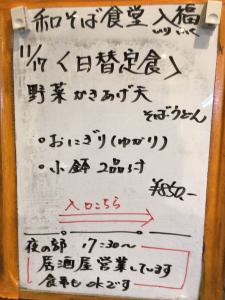 和そば食堂 入福
いり ふく
11/17 <日替定食>
野菜かきあげ天
そばうどん
・おにぎり(ゆかり)
・小鉢 2品付
¥850.-
入口こちら
夜の部 17:30〜
居酒屋営業しています
食事も okです